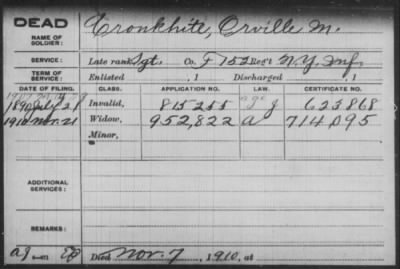 DEAD
NAME OF SOLDIER: Cronkhite, Orville M.
SERVICE: Late rank Sgt. Co. F 152 Reg't N.Y. Inf.
TERM OF SERVICE: Enlisted , 1 Discharged , 1
DATE OF FILING. CLASS. APPLICATION NO. LAW. CERTIFICATE NO.
1890 July 21 Invalid, 815255 623868
1910 Nov. 21 Widow, 952,822 a 714,095
Minor,
ADDITIONAL SERVICES:
REMARKS:
Died Nov. 7, 1910, at